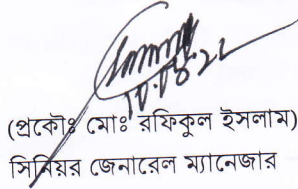 ১০.০৪.২২
(প্রকৌঃ মোঃ রফিকুল ইসলাম)
সিনিয়র জেনারেল ম্যানেজার